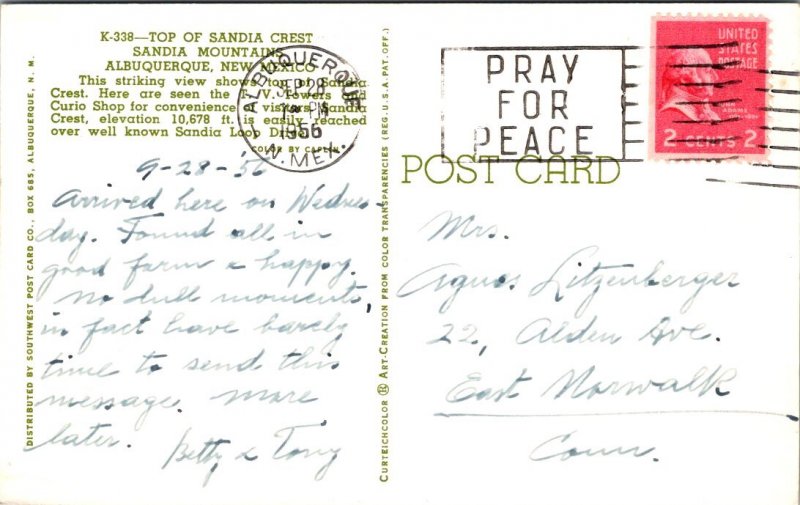 K-338—TOP OF SANDIA CREST
SANDIA MOUNTAINS
ALBUQUERQUE, NEW MEXICO
This striking view shows top of Sandia
Crest. Here are seen the T. V. Towers and
Curio Shop for convenience of visitors. Sandia
Crest, elevation 10,678 ft. is easily reached
over well known Sandia Loop Drive.
COLOR BY CAPLIN
ALBUQUERQUE
SEP 28
PM
1956
N. MEX.
PRAY
FOR
PEACE
UNITED
STATES
POSTAGE
JOHN
ADAMS
2 CENTS 2
POST CARD
9-28-56
Arrived here on Wednes-
day. Found all in
good form & happy.
No dull moments,
in fact have barely
time to send this
message. More
later.
Betty & Tony
Mrs.
Agnes Litzenberger
22, Alden Ave.
East Norwalk
Conn.
DISTRIBUTED BY SOUTHWEST POST CARD CO., BOX 685, ALBUQUERQUE, N. M.
CURTEICHCOLOR ® ART-CREATION FROM COLOR TRANSPARENCIES (REG. U.S.A. PAT. OFF.)